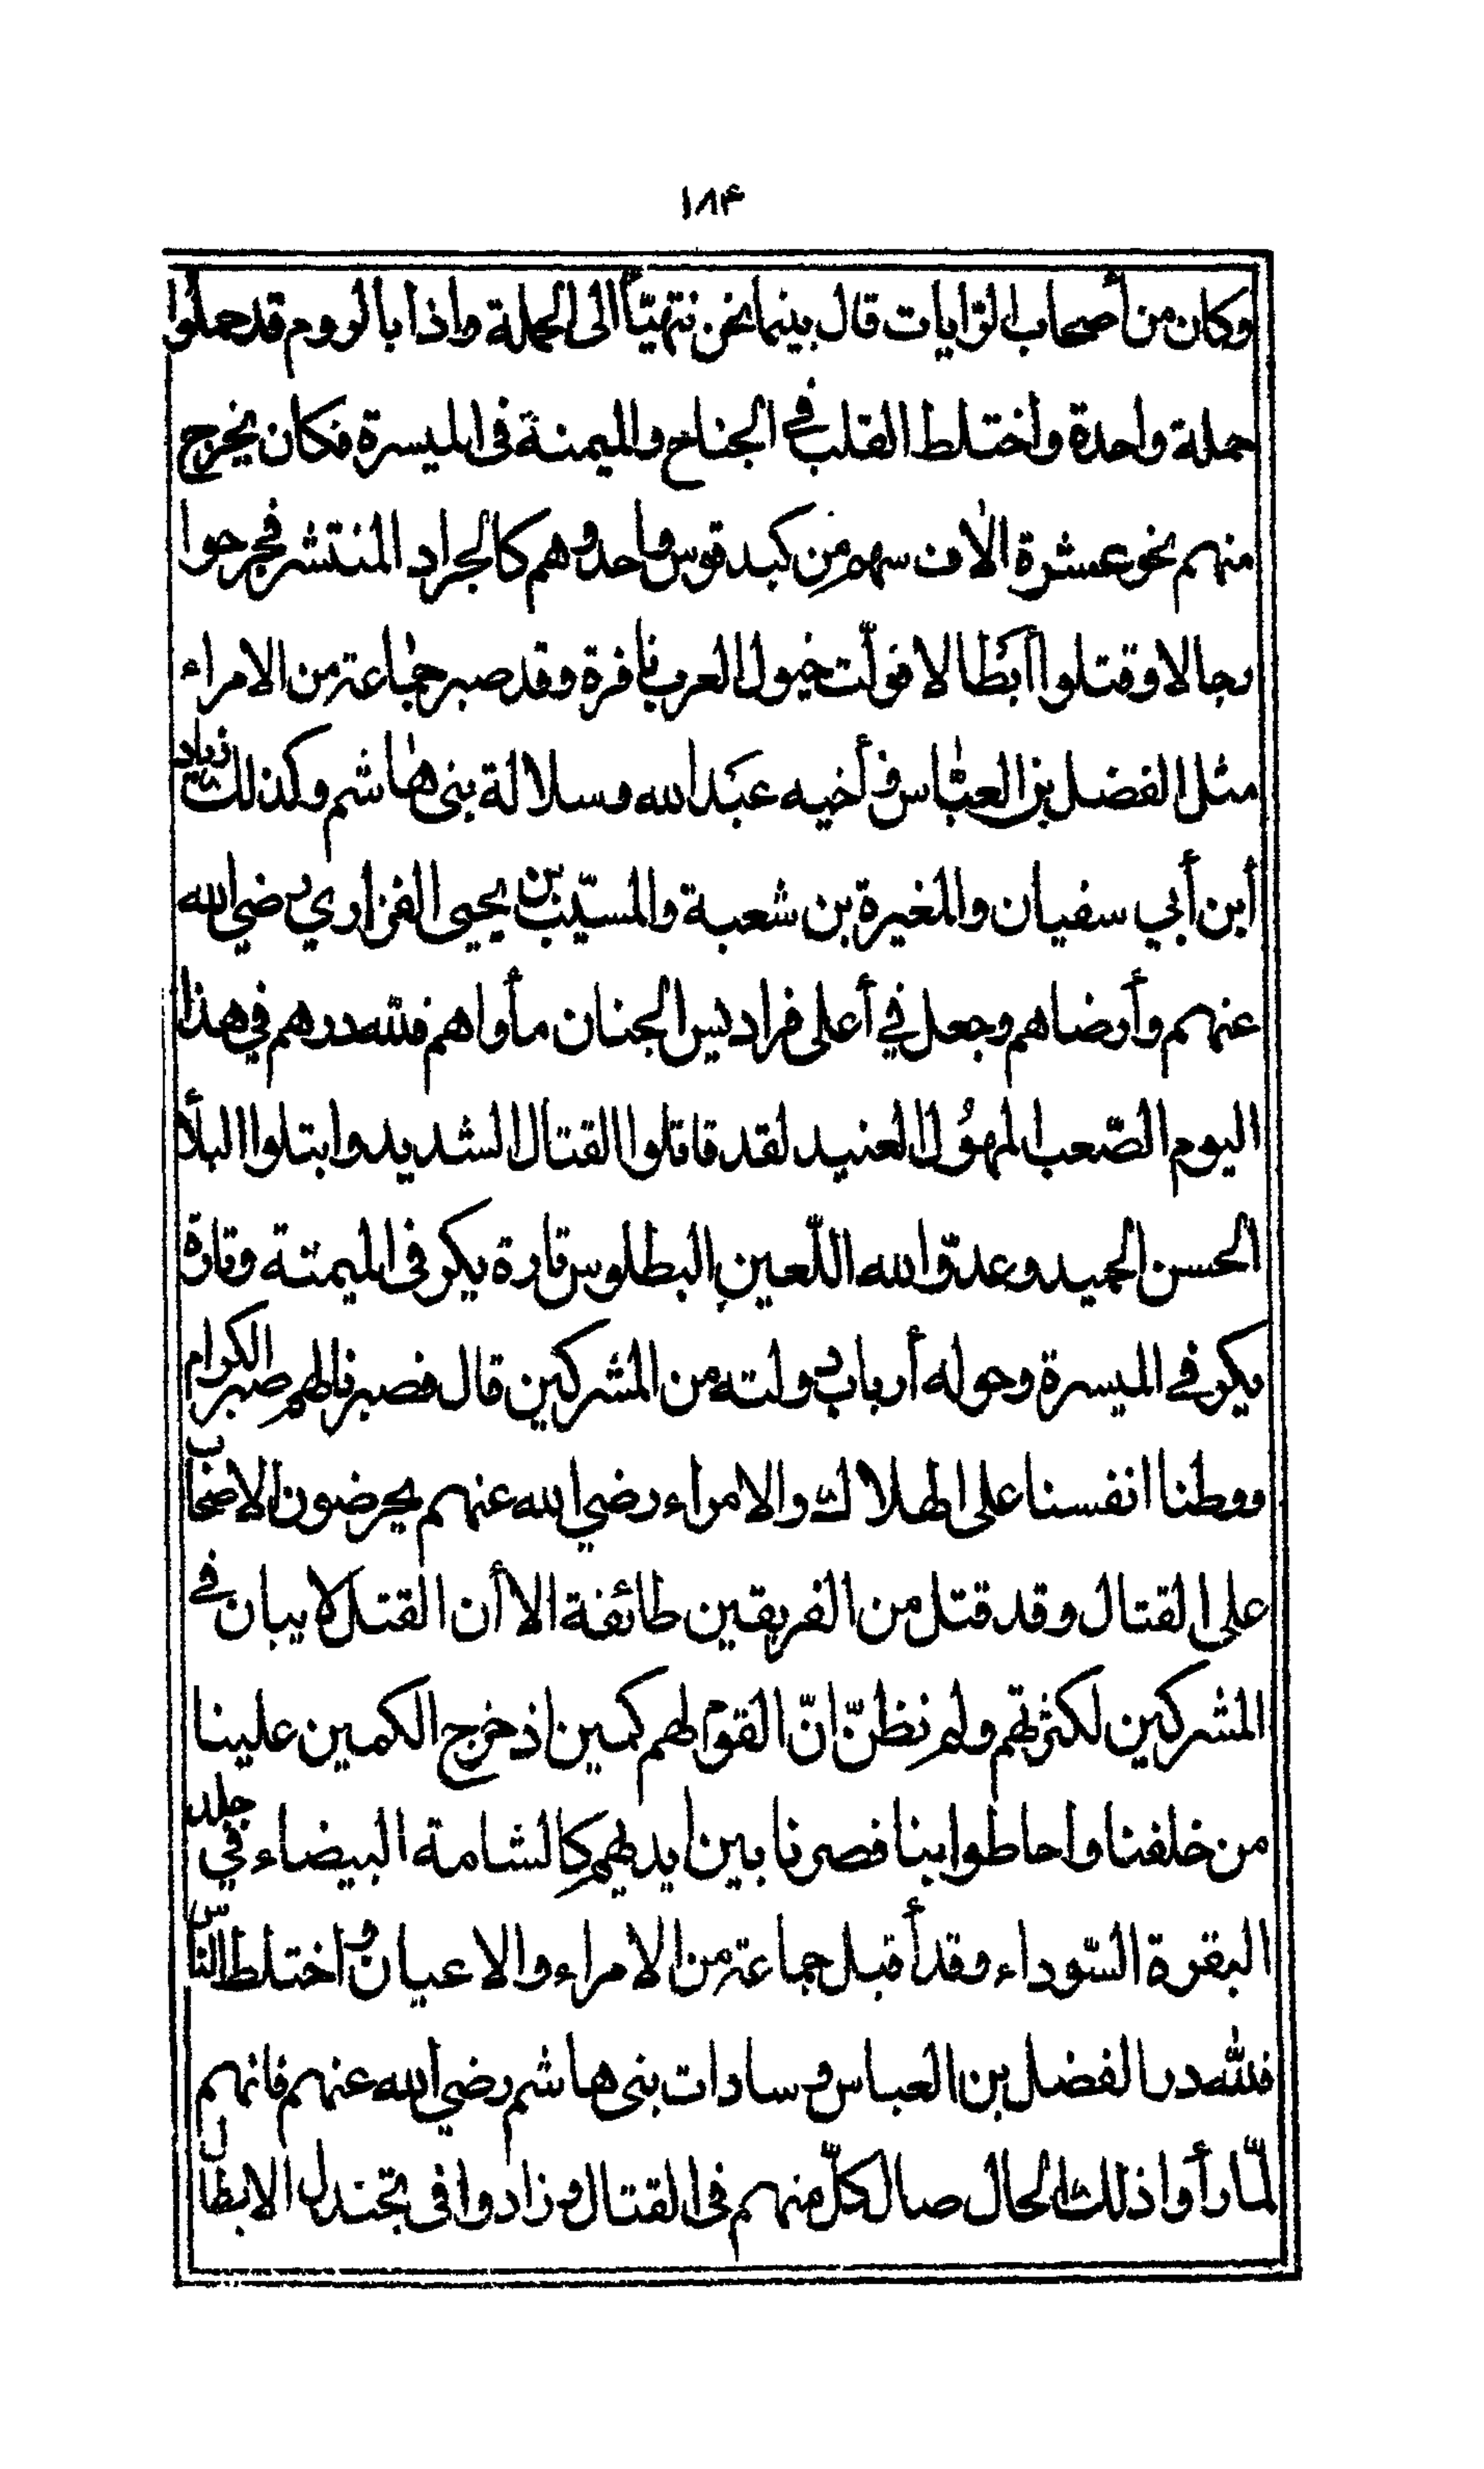 ١٨۴
وكان من أصحاب الرّايات قال بينما نحن نتهيّأ الى الحملة واذا بالروم قد حملوا
حملة واحدة واختلط القلب في الجناح والميمنة فى الميسرة فكان يخرج
منهم نحو عشرة الاف سهم من كبد قوس واحد وهم كالجراد المنتشر فجرحوا
رجالا وقتلوا أبطالا فولّت خيول العرب نافرة وقد صبر جماعة من الامراء
مثل الفضل بن العبّاس وأخيه عبد الله وسلالة بنى هاشم وكذلك زياد
أبن أبي سفيان والمغيرة بن شعبة والمسيّب بن يحيى الفزاري رضي الله
عنهم وأرضاهم وجعل في أعلى فراديس الجنان مأواهم فلله درهم في هذا
اليوم الصّعب المهول العنيد لقد قاتلوا القتال الشديد وابتلوا البلأ
الحسن الحميد وعدوّ الله اللّعين البطلوس تارة يكر فى الميمنة وتارة
يكر في الميسرة وحوله أرباب دولته من المشركين قال فصبرنا لهم صبر الكرام
ووطنا انفسنا على الهلاك والامراء رضي الله عنهم يحرضون الاصحاب
على القتال وقد قتل من الفريقين طائفة الا أن القتل لا يبان في
المشركين لكثرتهم ولم نظنّ انّ القوم لهم كمين اذ خرج الكمين علينا
من خلفنا واحاطوا بنا فصرنا بين ايديهم كالشامة البيضاء في جلد
البقرة السّوداء وقد أقبل جماعة من الامراء والاعيان واختلط النّاس
فلله در الفضل بن العباس وسادات بنى هاشم رضي الله عنهم فانهم
لمّا رأوا ذلك الحال صال كلّ منهم فى القتال وزادوا فى تجندل الابطال